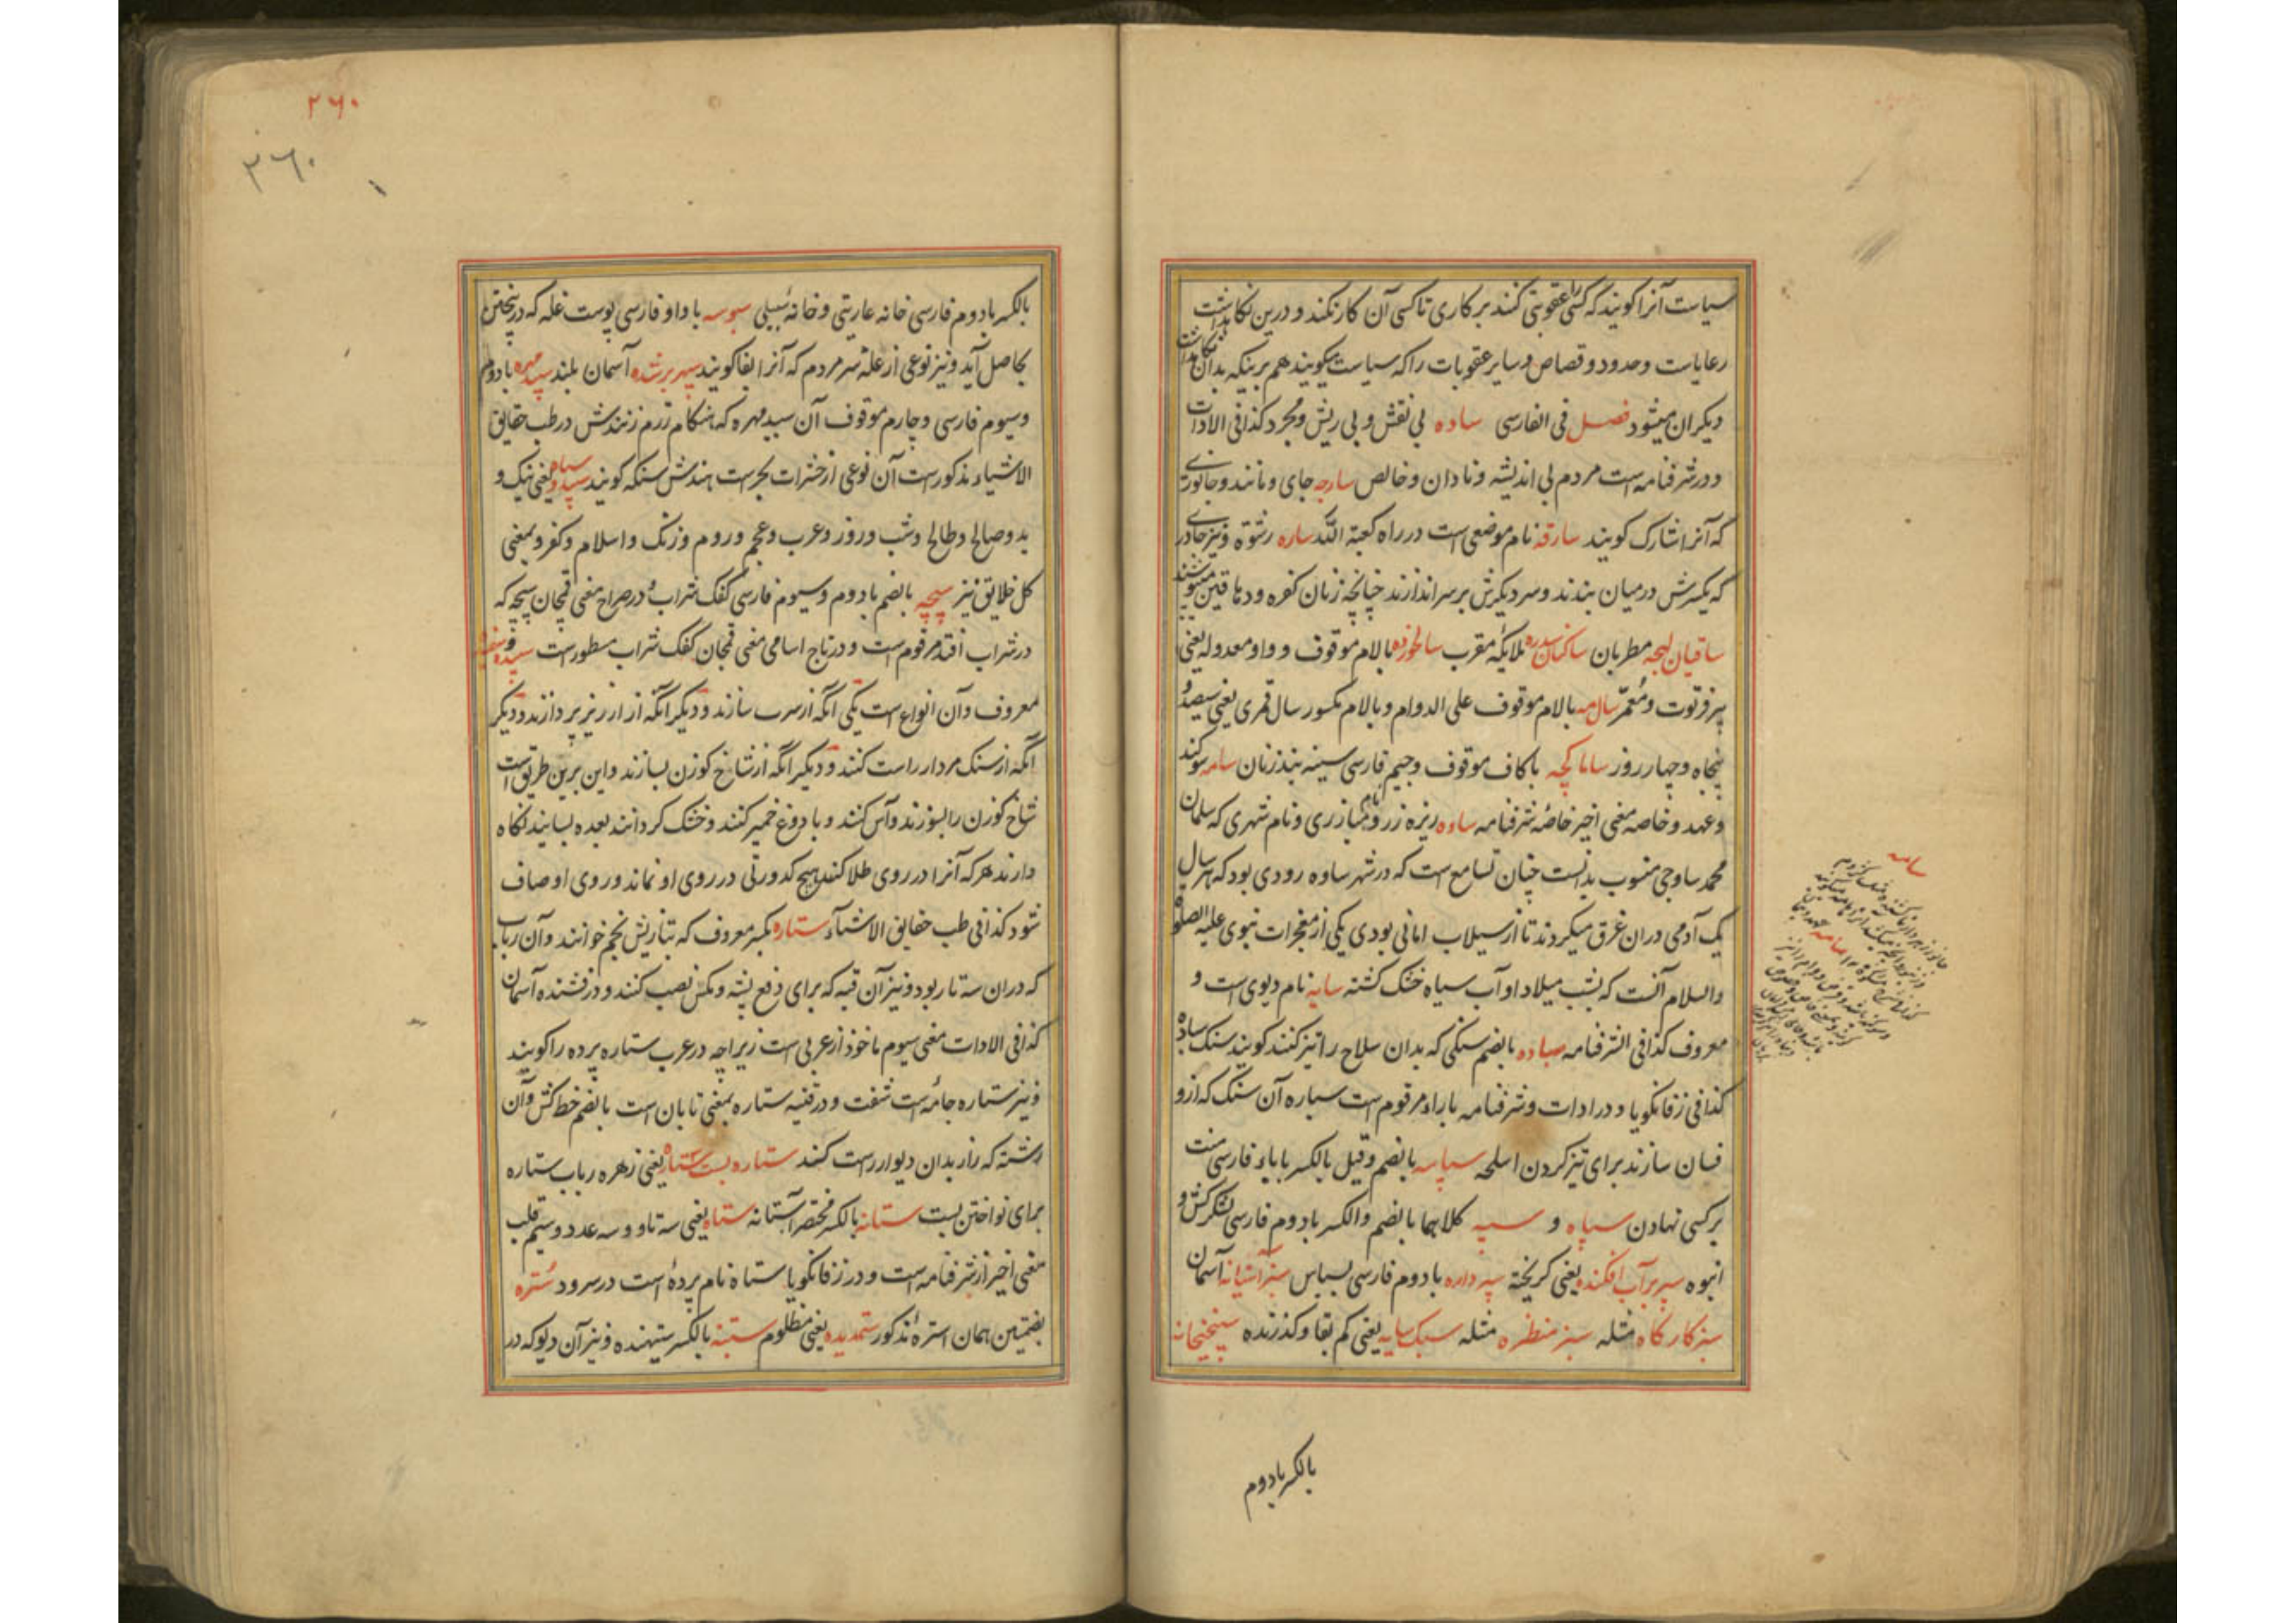 سیاست آنرا کویند که کسی را عقوبتی کنند بر کاری تا کسی آن کار نکند و درین نکاهداشت
رعایاست وحدود و قصاص و سایر عقوبات را که سیاست میکویند هم برینکه بدان نکاهداشت
دیکران میشود فصل فی الفارسی ساده بی نقش و بی ریش و مجرد کذا فی الادات
و در شرفنامه است مردم بی اندیشه و نادان و خالص سارجه جای و مانند و جانوری
که آنرا شارک کویند سارقه نام موضعی است در راه کعبة الله ساره رشوة و نیز چادری
که یکسرش در میان بندند و سر دیکرش بر سر اندازند چنانچه زنان کفره و دهاقین میپوشند
ساقیان لهجه مطربان ساکنان سدره ملایکه مقرب سالخورده بالام موقوف و واو معدوله یعنی
پیر فرتوت و معمر سال مه بالام موقوف علی الدوام و بالام مکسور سال قمری یعنی سیصد و
پنجاه و چهار روز ساماکچه باکاف موقوف و جیم فارسی سینه بند زنان سامه سوکند
و عهد و خاصه معنی اخیر خاصهٔ شرفنامه ساوه ریزه زر و نام مبارزی و نام شهری که سلمان
محمد ساوجی منسوب بدانست چنان تسامع است که در شهر ساوه رودی بود که هر سال
یک آدمی دران غرق میکردند تا از سیلاب امانی بودی یکی از معجزات نبوی علیه الصلوة
والسلام آنست که بشب میلاد او آب سیاه خشک کشته سایه نام دیوی است و
معروف کذا فی الشرفنامه سباده بالضم سنکی که بدان سلاح را تیز کنند کویند سنک ساده
کذا فی زفانکویا و در ادات و شرفنامه باراء مرقوم است سباره آن سنک که ازو
فسان سازند برای تیز کردن اسلحه سپاسه بالضم و قیل بالکسر باباء فارسی منت
بر کسی نهادن سپاه و سپه کلاهما بالضم والکسر بادوم فارسی لشکر کش و
انبوه سپر بر آب افکنده یعنی کریخته سپه داره بادوم فارسی بسباس سبز آشیانه آسمان
سبز کارکاه مثله سبز منظره مثله سبک سایه یعنی کم بقا و کذرنده سپنجخانه
بالکسر بادوم
سامه
۳۶۰
۳۶۰
بالکسر بادوم فارسی خانه عاریتی و خانهٔ سبیلی سبوسه باواو فارسی پوست غله که در پختن
حاصل آید و نیز نوعی از علة سر مردم که آنرا بفا کویند سپهر بر شده آسمان بلند سپید مهره بادوم
و سیوم فارسی و چارم موقوف آن سپید مهره که هنکام رزم زنندش در طب حقایق
الاشیاء مذکور است آن نوعی از حشرات بحر است هندش سنکه کویند سپید و سیاه یعنی نیک و
بد و صالح و طالح و شب و روز و عرب و عجم و روم و زنک و اسلام و کفر و بمعنی
کل خلایق نیز سپچه بالضم بادوم و سیوم فارسی کفک شراب و در صراح معنی قمحان سپچه که
در شراب افتد مرقوم است و در تاج اسامی معنی قمحان کفک شراب مسطور است سپیده
معروف و آن انواع است یکی آنکه از سرب سازند و دیکر آنکه از ارزیز پردازند و دیکر
آنکه از سنک مردار راست کنند و دیکر آنکه از شاخ کوزن بسازند و این برین طریق است
شاخ کوزن را بسوزند و آس کنند و با دوغ خمیر کنند و خشک کردانند بعده بسایند نکاه
دارند هر که آنرا در روی طلا کند هیچ کدورتی در روی او نماند و روی او صاف
شود کذا فی طب حقایق الاشیاء ستاره بکسر معروف که بتازیش نجم خوانند و آن رباب
که دران سه تار بود و نیز آن قبه که برای دفع پشه و مکس نصب کنند و درفشنده آسمان
کذا فی الادات معنی سیوم ماخوذ از عربی است زیراچه در عرب ستاره پرده را کویند
و نیز ستاره جامهٔ است شفت و در قنیه ستاره بمعنی تابان است بالضم خط کش و آن
رشته که راز بدان دیوار راست کند ستاره بست ستاه یعنی زهره رباب ستاره
برای نواختن بست ستانه بالکسر مختصر آستانه ستاه یعنی سه تاو و سه عدد و سیم قلب
معنی اخیر از شرفنامه است و در زفانکویا ستاه نام پردهٔ است در سرود ستره
بضمتین همان استرهٔ مذکور ستمدیده یعنی مظلوم ستنبه بالکسر ستیهنده و نیز آن دیو که در